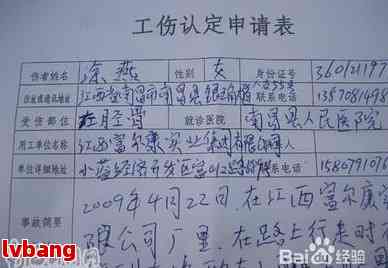 工伤认定申请表
伤者姓名 涂燕 性别 女 身份证号 360121197
住址或通讯地址 江西省南昌市南昌县 联系电话 1357081498
受伤部位 就诊医院 南昌县人民医院
用工单位名称 江西富尔康实业集团有限公司
单位详细地址 小蓝经济开发区富山 路 联系电话 1580791016
2009年4月22日,在江西富尔康实
事故简要 限公司厂里,在路上行走时
lvbang
Bai 百度经验